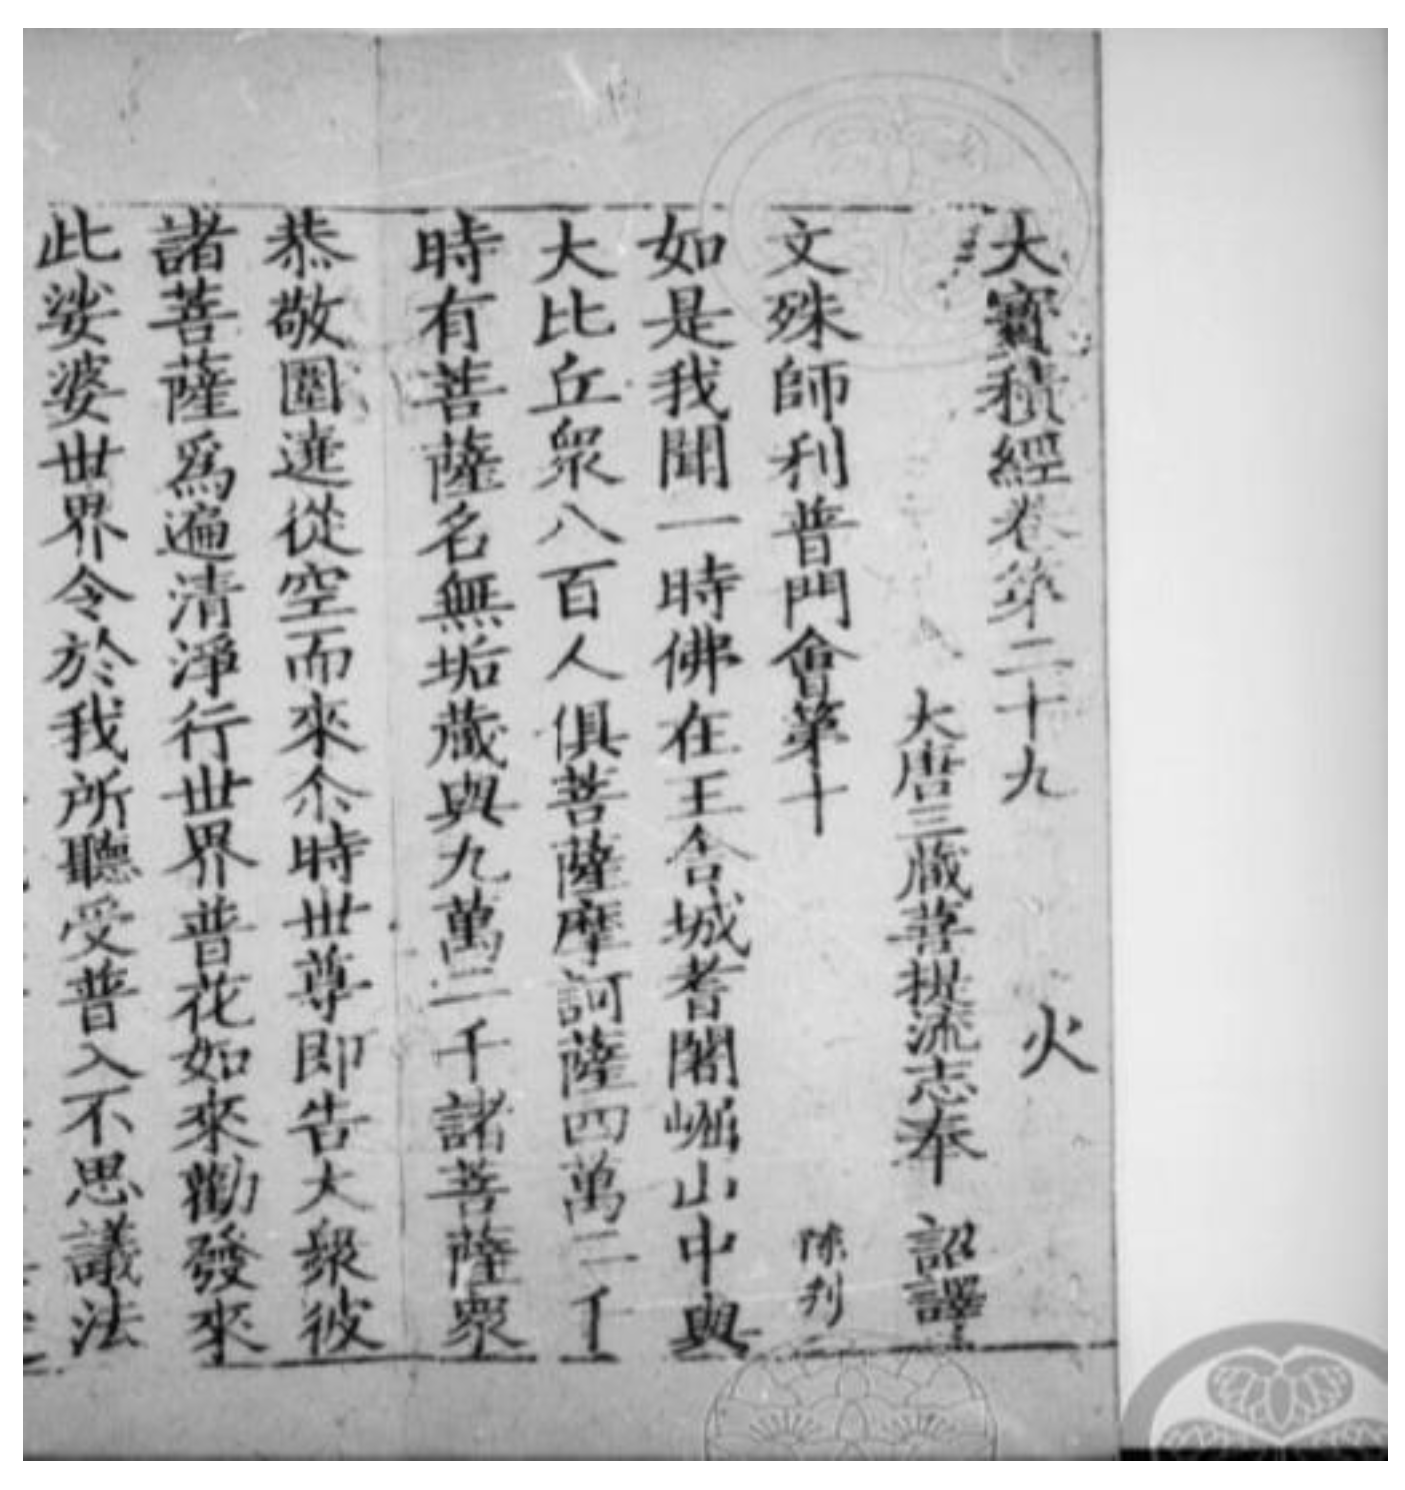 大寶積經卷第二十九 火
大唐三藏菩提流志奉 詔譯
文殊師利普門會第十 陈刋
如是我聞一時佛在王舍城耆闍崛山中與
大比丘衆八百人俱菩薩摩訶薩四萬二千
時有菩薩名無垢藏與九萬二千諸菩薩衆
恭敬圍遶從空而來尒時世尊即告大衆彼
諸菩薩爲遍清淨行世界普花如來勸發來
此娑婆世界令於我所聽受普入不思議法